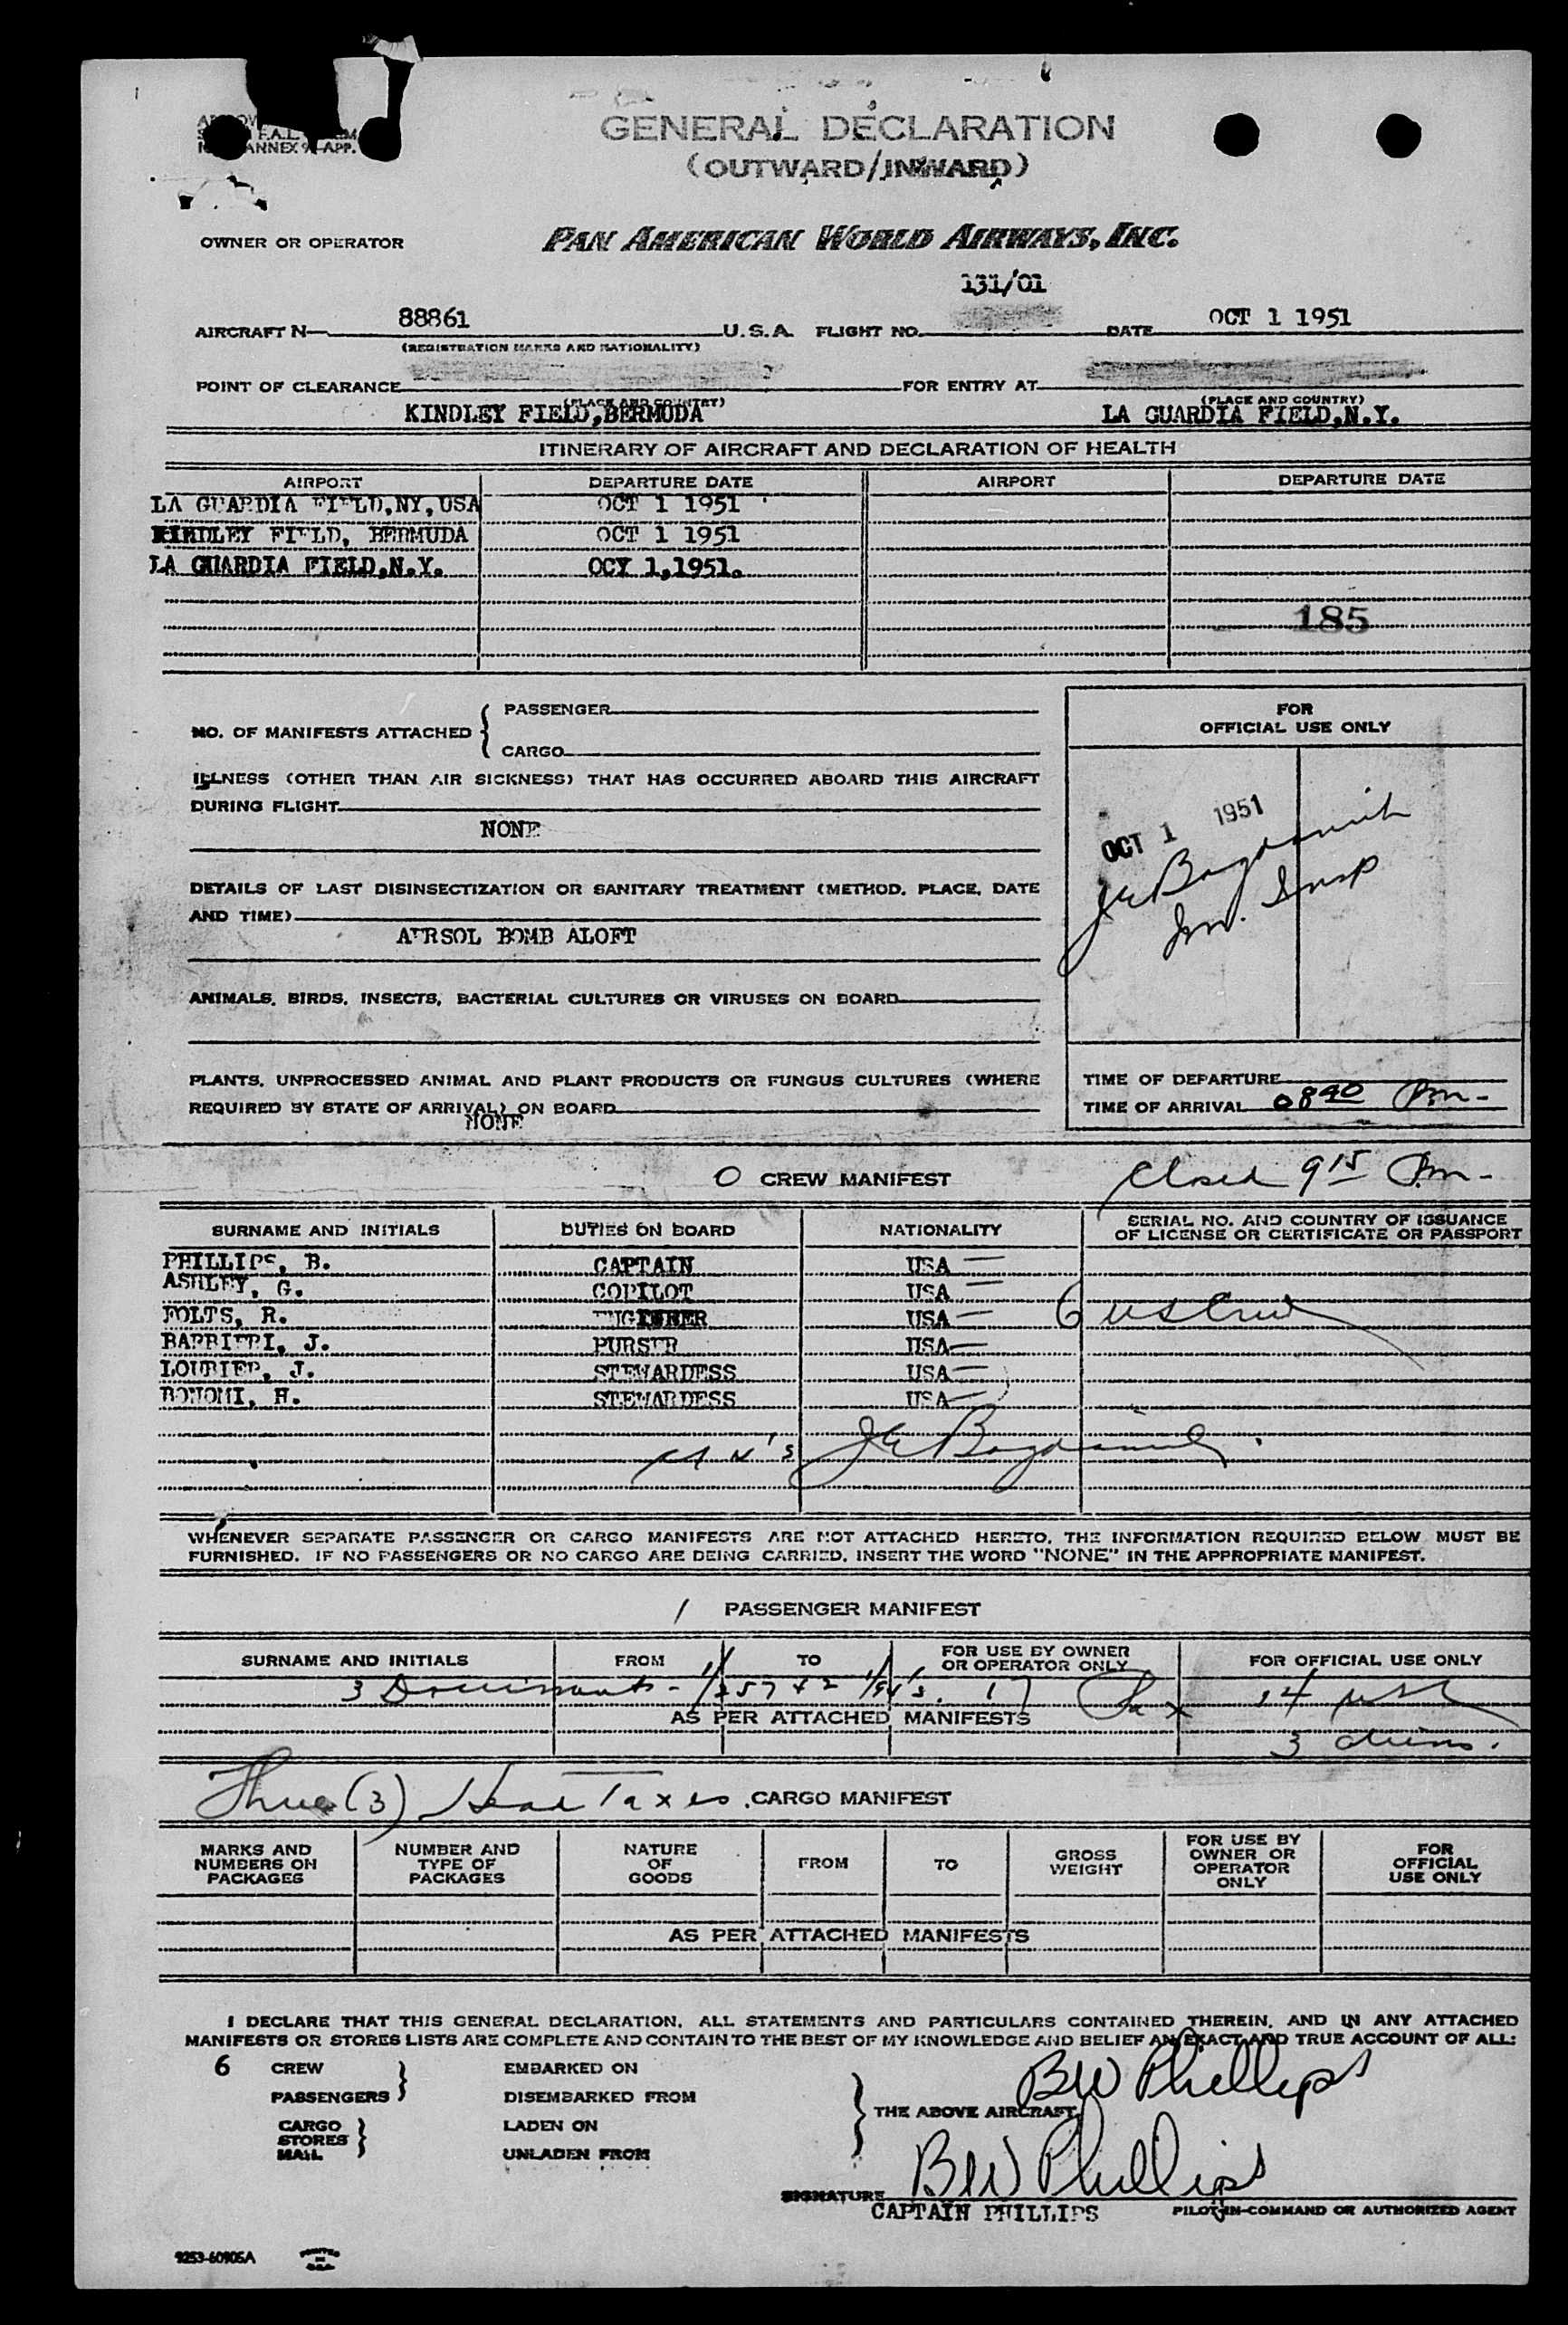 GENERAL DECLARATION
(OUTWARD/INWARD)
ANNEX 9, APP.
OWNER OR OPERATOR PAN AMERICAN WORLD AIRWAYS, INC.
131/01
AIRCRAFT N— 88861 U.S.A. FLIGHT NO. DATE OCT 1 1951
(REGISTRATION MARKS AND NATIONALITY)
POINT OF CLEARANCE FOR ENTRY AT
(PLACE AND COUNTRY) (PLACE AND COUNTRY)
KINDLEY FIELD,BERMUDA LA GUARDIA FIELD,N.Y.
ITINERARY OF AIRCRAFT AND DECLARATION OF HEALTH
AIRPORT DEPARTURE DATE AIRPORT DEPARTURE DATE
LA GUARDIA FIELD,NY,USA OCT 1 1951
KINDLEY FIELD, BERMUDA OCT 1 1951
LA GUARDIA FIELD,N.Y. OCY 1,1951.
185
NO. OF MANIFESTS ATTACHED { PASSENGER
CARGO
FOR
OFFICIAL USE ONLY
ILLNESS (OTHER THAN AIR SICKNESS) THAT HAS OCCURRED ABOARD THIS AIRCRAFT
DURING FLIGHT
NONE
OCT 1 1951
DETAILS OF LAST DISINSECTIZATION OR SANITARY TREATMENT (METHOD, PLACE, DATE
AND TIME)
AERSOL BOMB ALOFT
Im. Insp
ANIMALS, BIRDS, INSECTS, BACTERIAL CULTURES OR VIRUSES ON BOARD
PLANTS, UNPROCESSED ANIMAL AND PLANT PRODUCTS OR FUNGUS CULTURES (WHERE
REQUIRED BY STATE OF ARRIVAL) ON BOARD
NONE
TIME OF DEPARTURE
TIME OF ARRIVAL 0840 Pm-
O CREW MANIFEST Closed 915 Pm-
SURNAME AND INITIALS DUTIES ON BOARD NATIONALITY SERIAL NO. AND COUNTRY OF ISSUANCE
OF LICENSE OR CERTIFICATE OR PASSPORT
PHILLIPS, B. CAPTAIN USA
ASHLEY, G. COPILOT USA
FOLTS, R. ENGINEER USA 6 US Crew
BARBIERI, J. PURSER USA
LOUBIER, J. STEWARDESS USA
BONOMI, H. STEWARDESS USA
WHENEVER SEPARATE PASSENGER OR CARGO MANIFESTS ARE NOT ATTACHED HERETO, THE INFORMATION REQUIRED BELOW MUST BE
FURNISHED. IF NO PASSENGERS OR NO CARGO ARE BEING CARRIED, INSERT THE WORD "NONE" IN THE APPROPRIATE MANIFEST.
/ PASSENGER MANIFEST
SURNAME AND INITIALS FROM TO FOR USE BY OWNER
OR OPERATOR ONLY FOR OFFICIAL USE ONLY
3 Documents - 17 Pax 14 USC
AS PER ATTACHED MANIFESTS
3 aliens.
Three (3) Head Taxes. CARGO MANIFEST
MARKS AND
NUMBERS ON
PACKAGES
NUMBER AND
TYPE OF
PACKAGES
NATURE
OF
GOODS
FROM
TO
GROSS
WEIGHT
FOR USE BY
OWNER OR
OPERATOR
ONLY
FOR
OFFICIAL
USE ONLY
AS PER ATTACHED MANIFESTS
I DECLARE THAT THIS GENERAL DECLARATION, ALL STATEMENTS AND PARTICULARS CONTAINED THEREIN, AND IN ANY ATTACHED
MANIFESTS OR STORES LISTS ARE COMPLETE AND CONTAIN TO THE BEST OF MY KNOWLEDGE AND BELIEF AN EXACT AND TRUE ACCOUNT OF ALL:
6 CREW EMBARKED ON BW Phillips
PASSENGERS } DISEMBARKED FROM
THE ABOVE AIRCRAFT.
CARGO LADEN ON
STORES
MAIL UNLADEN FROM
SIGNATURE BW Phillips
CAPTAIN PHILLIPS PILOT-IN-COMMAND OR AUTHORIZED AGENT
9253-60905A PRINTED
IN
U.S.A.